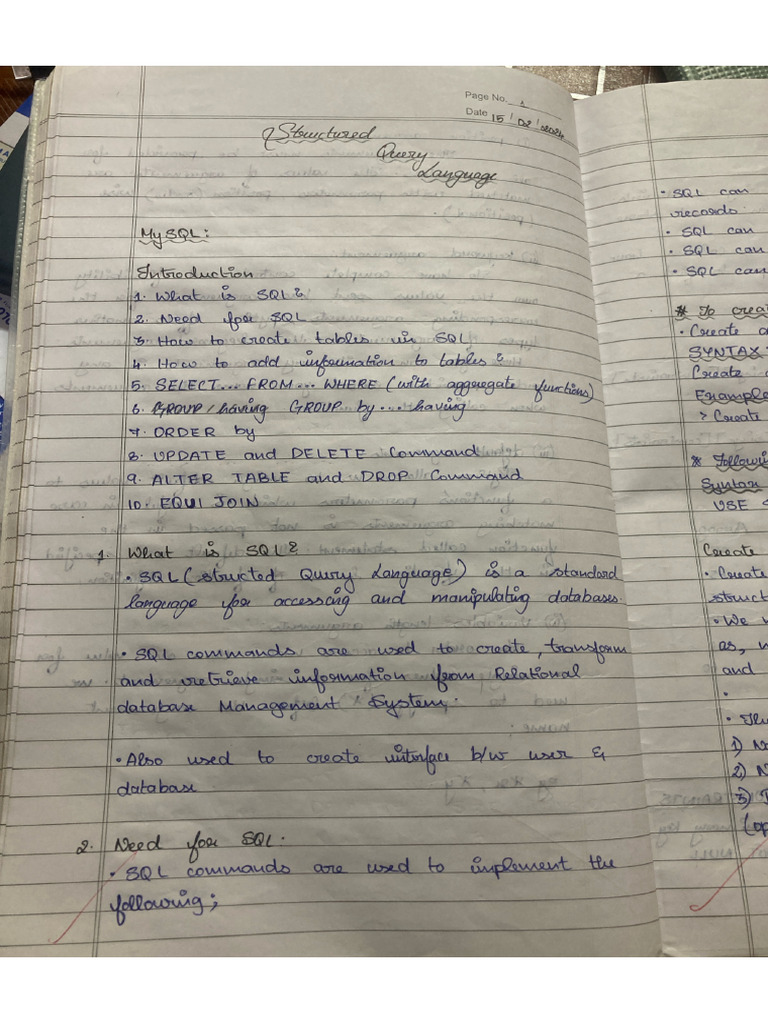 Page No. 1
Date 15/02/2024
Structured
Query
Language
MySQL:
Introduction
1. What is SQL?
2. Need for SQL
3. How to create tables in SQL
4. How to add information to tables?
5. SELECT... FROM... WHERE (with aggregate functions)
6. GROUP by... having
7. ORDER by
8. UPDATE and DELETE Command
9. ALTER TABLE and DROP Command
10. EQUI JOIN
1. What is SQL?
• SQL (structed Query Language) is a standard
language for accessing and manipulating databases.
• SQL commands are used to create, transform
and retrieve information from Relational
database Management System.
• Also used to create interface b/w user &
database.
2. Need for SQL.
• SQL commands are used to implement the
following;
• SQL can
records.
• SQL can
• SQL can
• SQL can
* To
• Create
SYNTAX
Create
Example
> Create
* 
Syntax
USE
Create
• Create
struct
• We
as,
and
•
•
1)
2)
3)